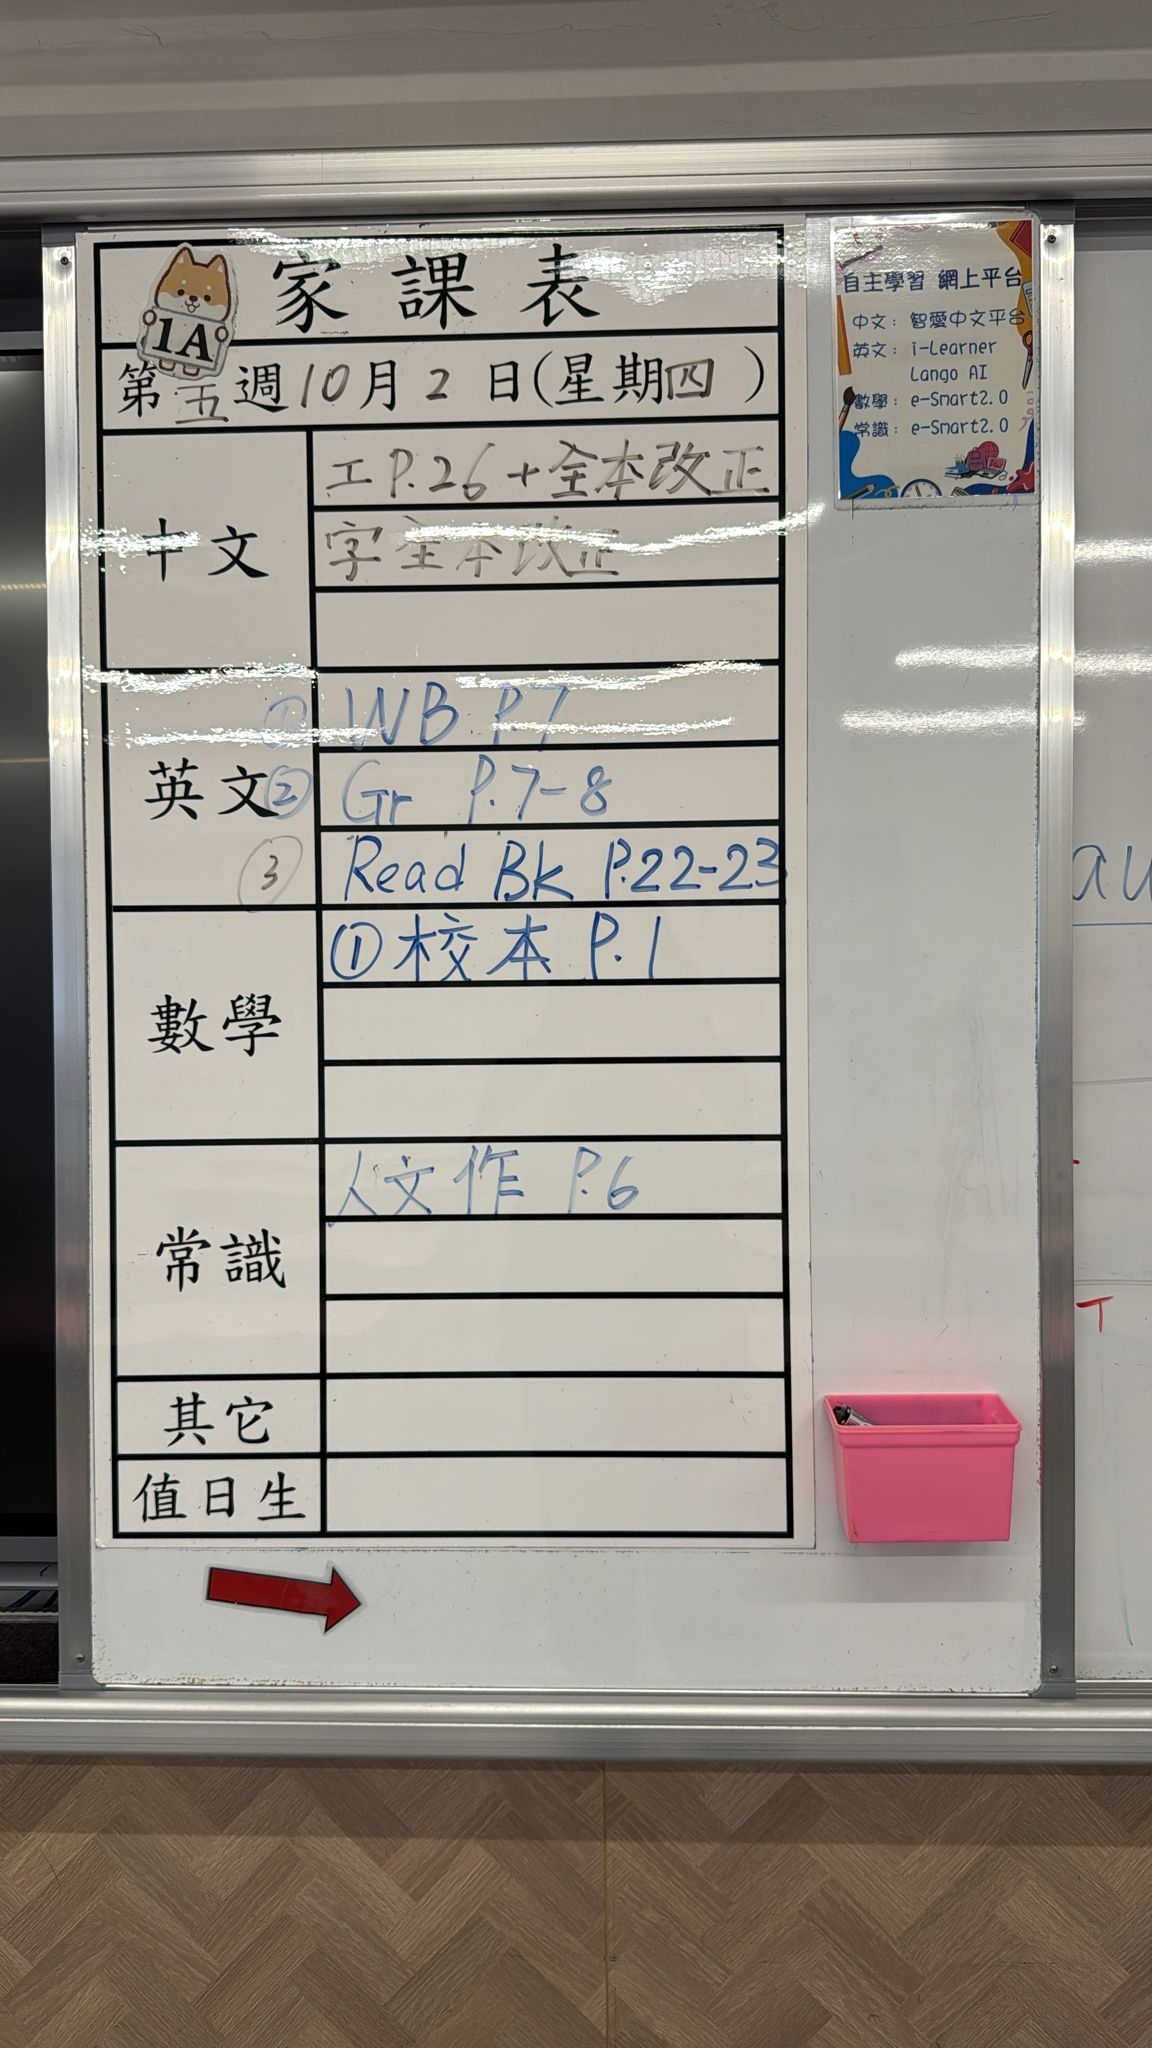 家課表
1A
第五週10月2日(星期四)
中文
工P.26+全本改正
字全本改正
英文
① WB P.7
② Gr P.7-8
③ Read Bk P.22-23
數學
①校本 P.1
常識
人文作 P.6
其它
值日生
自主學習 網上平台
中文：智愛中文平台
英文：i-Learner
Lango AI
數學：e-Smart2.0
常識：e-Smart2.0
au
T